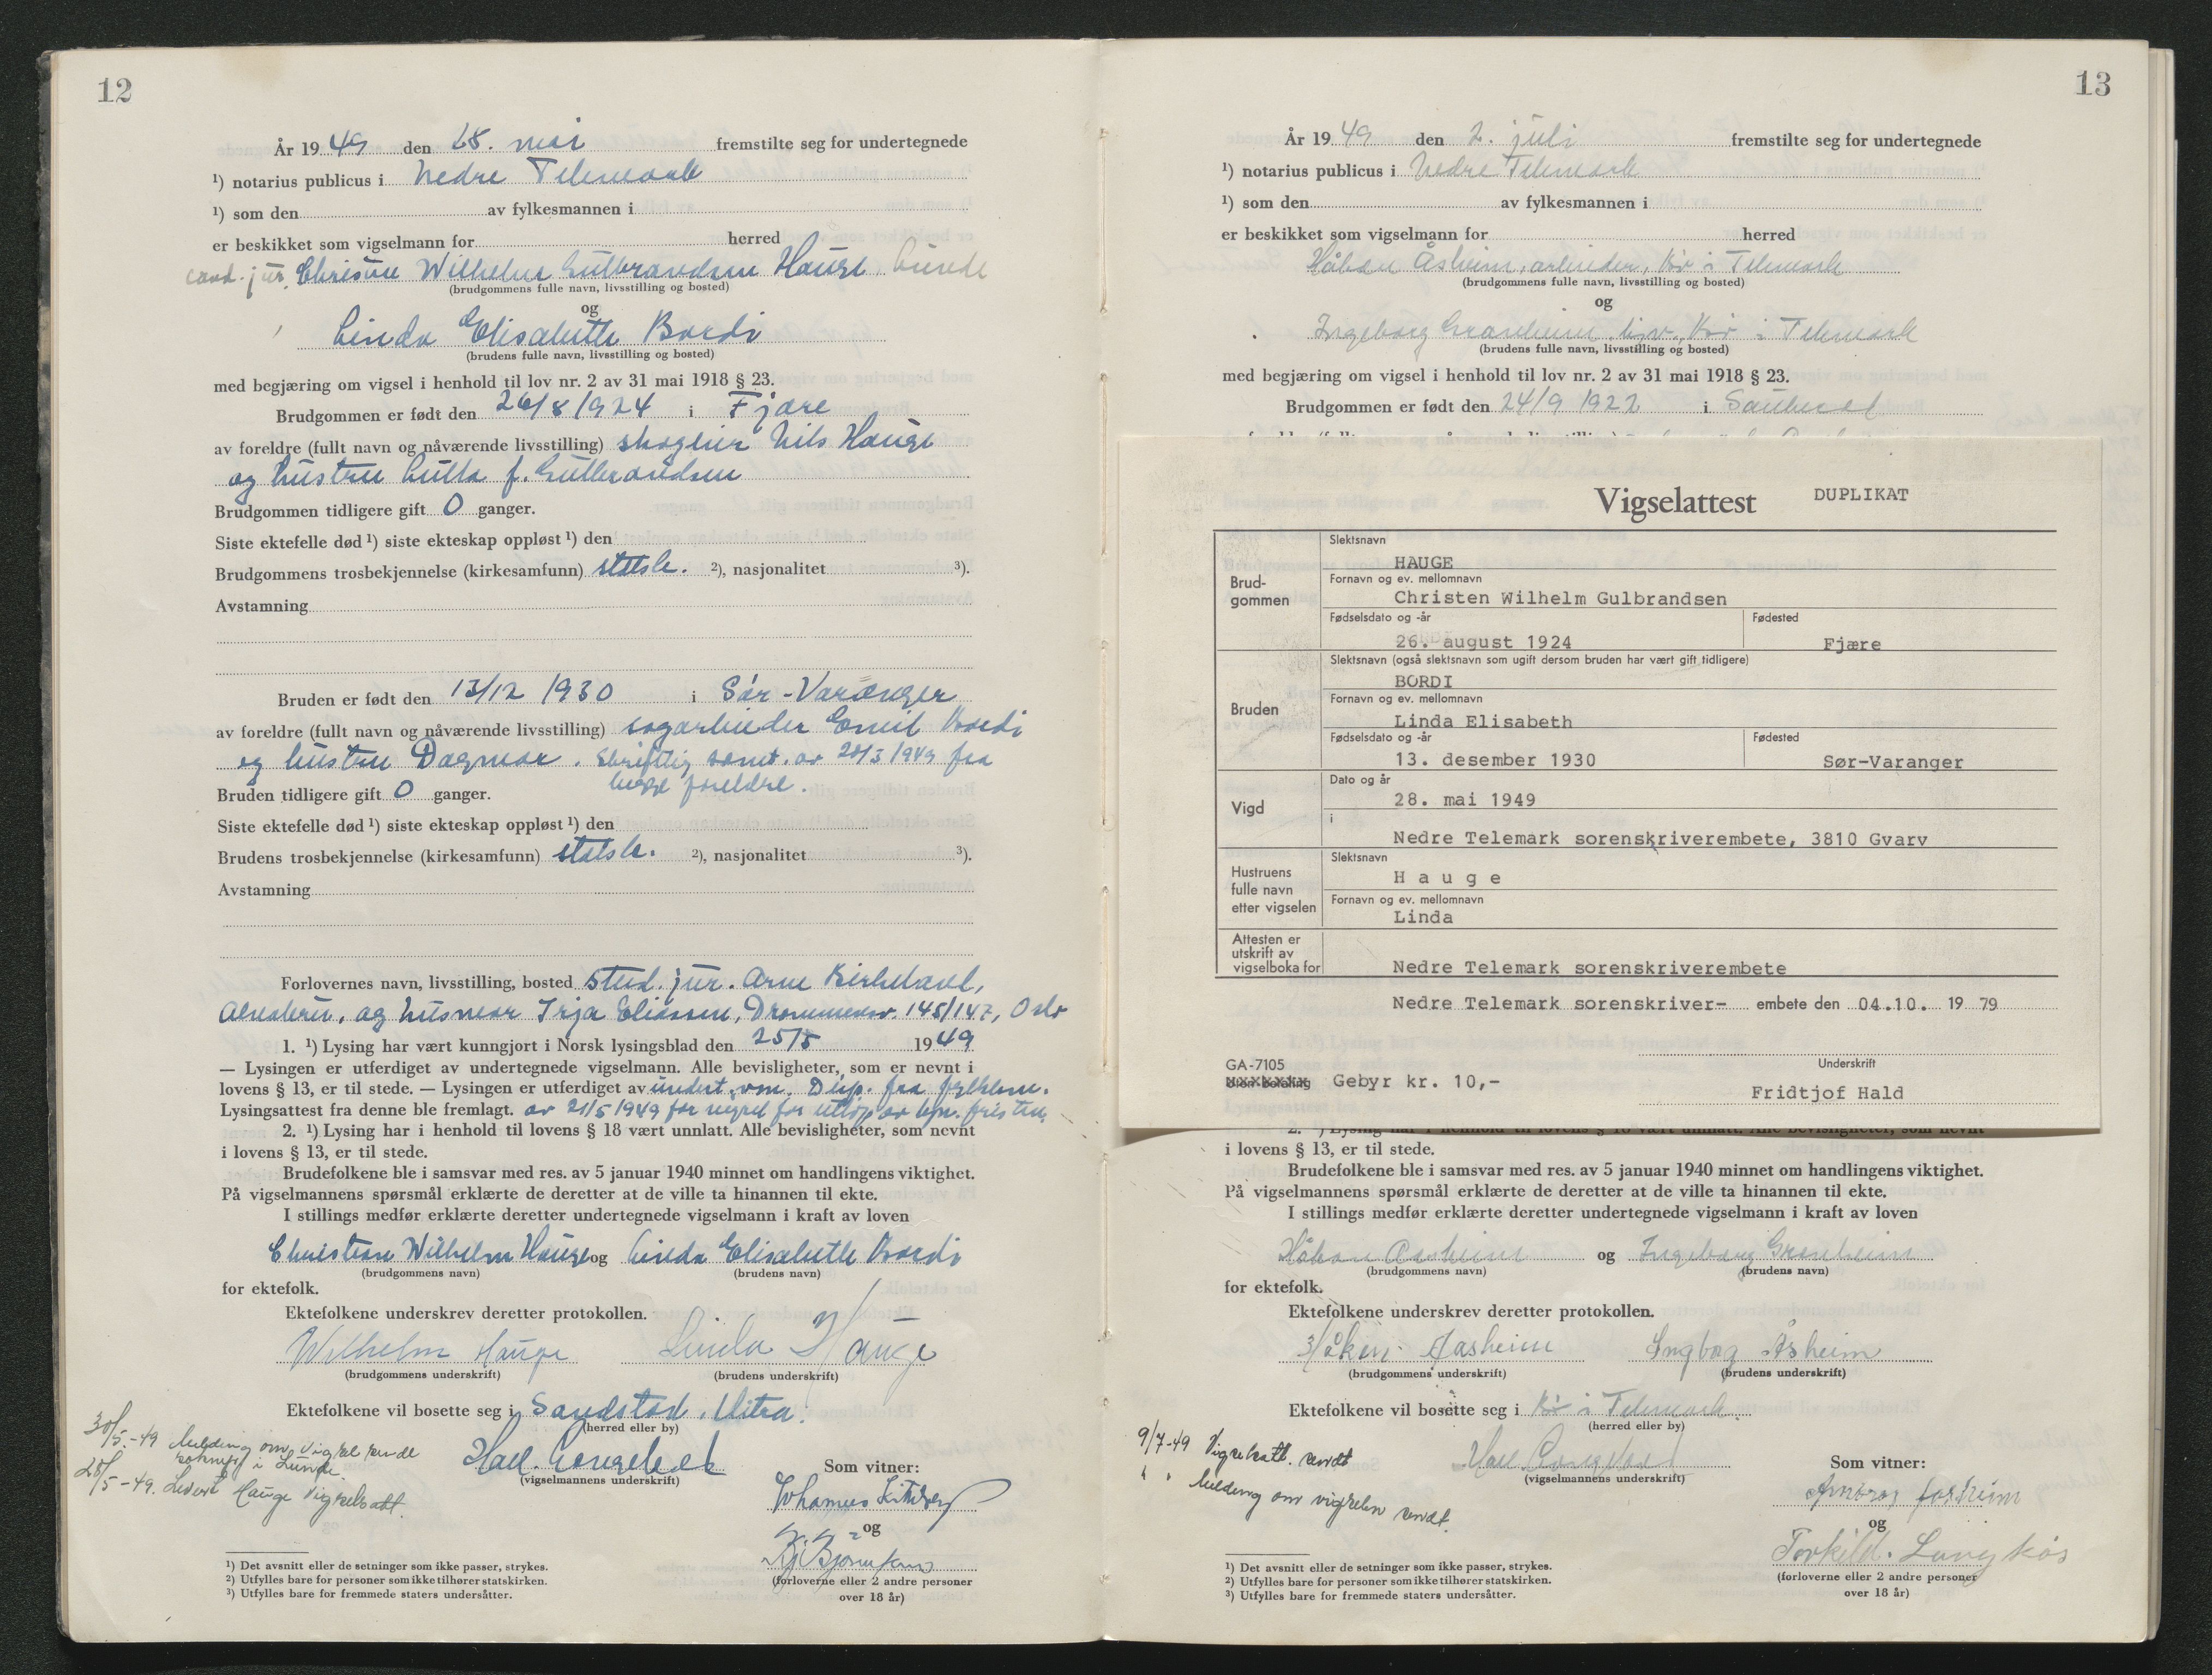 12
År 1949 den 28. mai fremstilte seg for undertegnede
¹) notarius publicus i Nedre Telemark
¹) som den av fylkesmannen i
er beskikket som vigselmann for herred
cand. jur. Christen Wilhelm Gulbrandsen Hauge Lunde
(brudgommens fulle navn, livsstilling og bosted)
og
Linda Elisabeth Bordi
(brudens fulle navn, livsstilling og bosted)
med begjæring om vigsel i henhold til lov nr. 2 av 31 mai 1918 § 23.
Brudgommen er født den 26/8 1924 i Fjære
av foreldre (fullt navn og nåværende livsstilling) skogeier Nils Hauge
og hustru Gulla f. Gulbrandsen
Brudgommen tidligere gift 0 ganger.
Siste ektefelle død ¹) siste ekteskap oppløst ¹) den
Brudgommens trosbekjennelse (kirkesamfunn) statsk. ²), nasjonalitet ³).
Avstamning
Bruden er født den 13/12 1930 i Sør-Varanger
av foreldre (fullt navn og nåværende livsstilling) sagarbeider Emil Bordi
og hustru Dagmar. Skriftlig samt. av 20/5 1949 fra
begge foreldre.
Bruden tidligere gift 0 ganger.
Siste ektefelle død ¹) siste ekteskap oppløst ¹) den
Brudens trosbekjennelse (kirkesamfunn) statsk. ²), nasjonalitet ³).
Avstamning
Forlovernes navn, livsstilling, bosted stud. jur. Arne Birkeland,
og husmor Irja Eliassen, Drammensv. 145/147, Oslo
1. ¹) Lysing har vært kunngjort i Norsk lysingsblad den 25/5 1949
— Lysingen er utferdiget av undertegnede vigselmann. Alle bevisligheter, som er nevnt i
lovens § 13, er til stede. — Lysingen er utferdiget av undert. vm. Disp. fra fylkesm.
Lysingsattest fra denne ble fremlagt. av 21/5 1949 for vigsel før utløp av lysn. fristen.
2. ¹) Lysing har i henhold til lovens § 18 vært unnlatt. Alle bevisligheter, som nevnt
i lovens § 13, er til stede.
Brudefolkene ble i samsvar med res. av 5 januar 1940 minnet om handlingens viktighet.
På vigselmannens spørsmål erklærte de deretter at de ville ta hinannen til ekte.
I stillings medfør erklærte deretter undertegnede vigselmann i kraft av loven
Christen Wilhelm Hauge og Linda Elisabeth Bordi
(brudgommens navn) (brudens navn)
for ektefolk.
Ektefolkene underskrev deretter protokollen.
Wilhelm Hauge Linda Hauge
(brudgommens underskrift) (brudens underskrift)
Ektefolkene vil bosette seg i Sandstad, Hitra.
(herred eller by)
30/5-49 Melding om vigsel sendt
sokneprest i Lunde.
28/5-49. Levert Hauge vigselsatt.
(vigselmannens underskrift)
Som vitner:
Johannes
og
(forloverne eller 2 andre personer
over 18 år)
¹) Det avsnitt eller de setninger som ikke passer, strykes.
²) Utfylles bare for personer som ikke tilhører statskirken.
³) Utfylles bare for fremmede staters undersåtter.
13
År 1949 den 2. juli fremstilte seg for undertegnede
¹) notarius publicus i Nedre Telemark
¹) som den av fylkesmannen i
er beskikket som vigselmann for herred
Håkon Åsheim, arbeider, Bø i Telemark
(brudgommens fulle navn, livsstilling og bosted)
og
Ingeborg Grønheim, Bø i Telemark
(brudens fulle navn, livsstilling og bosted)
med begjæring om vigsel i henhold til lov nr. 2 av 31 mai 1918 § 23.
Brudgommen er født den 24/9 1922 i Sauherad
Vigselattest DUPLIKAT
Brud-
gommen
Slektsnavn
HAUGE
Fornavn og ev. mellomnavn
Christen Wilhelm Gulbrandsen
Fødselsdato og -år Fødested
26. august 1924 Fjære
Bruden
Slektsnavn (også slektsnavn som ugift dersom bruden har vært gift tidligere)
BORDI
Fornavn og ev. mellomnavn
Linda Elisabeth
Fødselsdato og -år Fødested
13. desember 1930 Sør-Varanger
Vigd
Dato og år
28. mai 1949
i
Nedre Telemark sorenskriverembete, 3810 Gvarv
Hustruens
fulle navn
etter vigselen
Slektsnavn
H a u g e
Fornavn og ev. mellomnavn
Linda
Attesten er
utskrift av
vigselboka for
Nedre Telemark sorenskriverembete
Nedre Telemark sorenskriver- embete den 04.10. 1979
GA-7105
Uten betaling Gebyr kr. 10,-
Underskrift
Fridtjof Hald
2. ¹) Lysing har i henhold til lovens § 18 vært unnlatt. Alle bevisligheter, som nevnt
i lovens § 13, er til stede.
Brudefolkene ble i samsvar med res. av 5 januar 1940 minnet om handlingens viktighet.
På vigselmannens spørsmål erklærte de deretter at de ville ta hinannen til ekte.
I stillings medfør erklærte deretter undertegnede vigselmann i kraft av loven
Håkon Aasheim og Ingeborg Grønheim
(brudgommens navn) (brudens navn)
for ektefolk.
Ektefolkene underskrev deretter protokollen.
Håkon Aasheim Ingbog Åsheim
(brudgommens underskrift) (brudens underskrift)
Ektefolkene vil bosette seg i Bø i Telemark.
(herred eller by)
9/7-49 Vigselsatt. sendt
" " Melding om vigselen sendt.
(vigselmannens underskrift)
Som vitner:
og
Torkild
(forloverne eller 2 andre personer
over 18 år)
¹) Det avsnitt eller de setninger som ikke passer, strykes.
²) Utfylles bare for personer som ikke tilhører statskirken.
³) Utfylles bare for fremmede staters undersåtter.